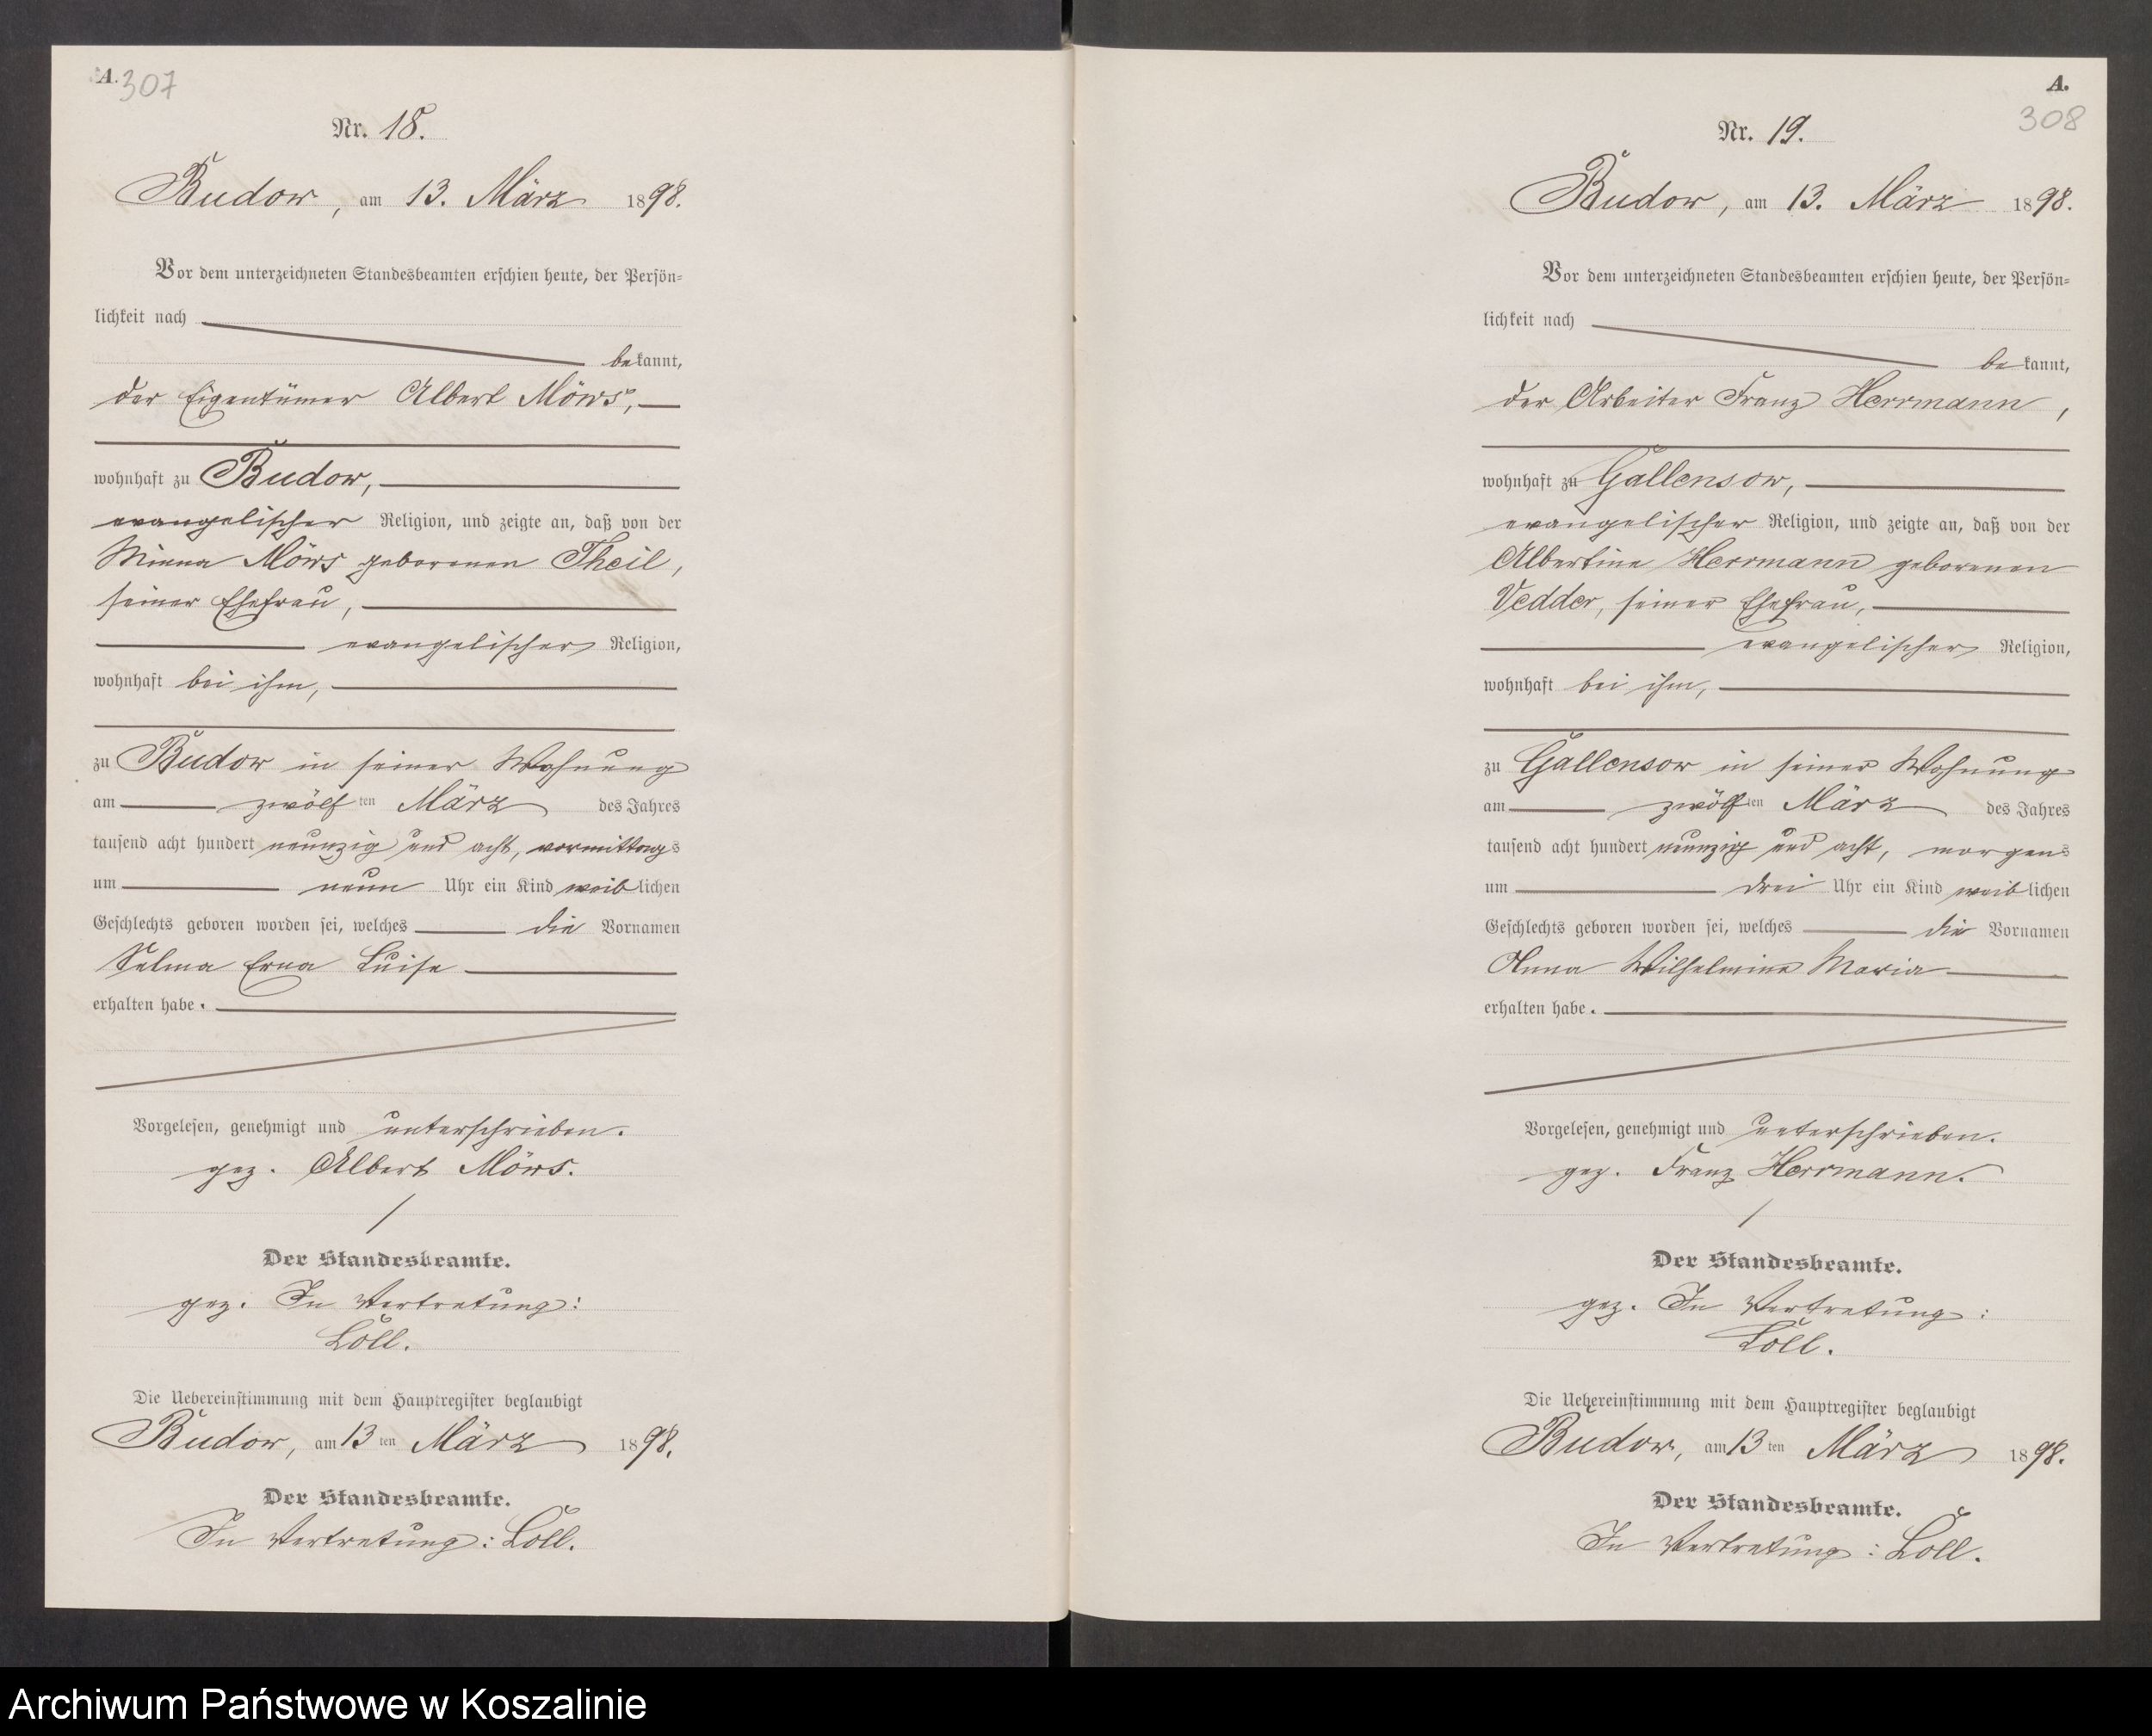 A. 307
Nr. 18.
Budow, am 13. März 1898.
Vor dem unterzeichneten Standesbeamten erschien heute, der Persön-
lichkeit nach
bekannt,
der Eigentümer Albert Möws,
wohnhaft zu Budow,
evangelischer Religion, und zeigte an, daß von der
Minna Möws geborenen Theil,
seiner Ehefrau,
evangelischer Religion,
wohnhaft bei ihm,
zu Budow in seiner Wohnung
am zwölf ten März des Jahres
tausend acht hundert neunzig und acht, vormittags
um neun Uhr ein Kind weiblichen
Geschlechts geboren worden sei, welches die Vornamen
Selma Erna Luise
erhalten habe.
Vorgelesen, genehmigt und unterschrieben.
gez. Albert Möws.
Der Standesbeamte.
gez. In Vertretung:
Löll.
Die Uebereinstimmung mit dem Hauptregister beglaubigt
Budow, am 13 ten März 1898.
Der Standesbeamte.
In Vertretung: Löll.
A.
308
Nr. 19.
Budow, am 13. März 1898.
Vor dem unterzeichneten Standesbeamten erschien heute, der Persön-
lichkeit nach
bekannt,
der Arbeiter Franz Herrmann,
wohnhaft zu Gallensow,
evangelischer Religion, und zeigte an, daß von der
Albertine Herrmann geborenen
Vedder, seiner Ehefrau,
evangelischer Religion,
wohnhaft bei ihm,
zu Gallensow in seiner Wohnung
am zwölf ten März des Jahres
tausend acht hundert neunzig und acht, morgens
um drei Uhr ein Kind weiblichen
Geschlechts geboren worden sei, welches die Vornamen
Anna Wilhelmine Maria
erhalten habe.
Vorgelesen, genehmigt und unterschrieben.
gez. Franz Herrmann.
Der Standesbeamte.
gez. In Vertretung:
Löll.
Die Uebereinstimmung mit dem Hauptregister beglaubigt
Budow, am 13 ten März 1898.
Der Standesbeamte.
In Vertretung: Löll.
Archiwum Państwowe w Koszalinie